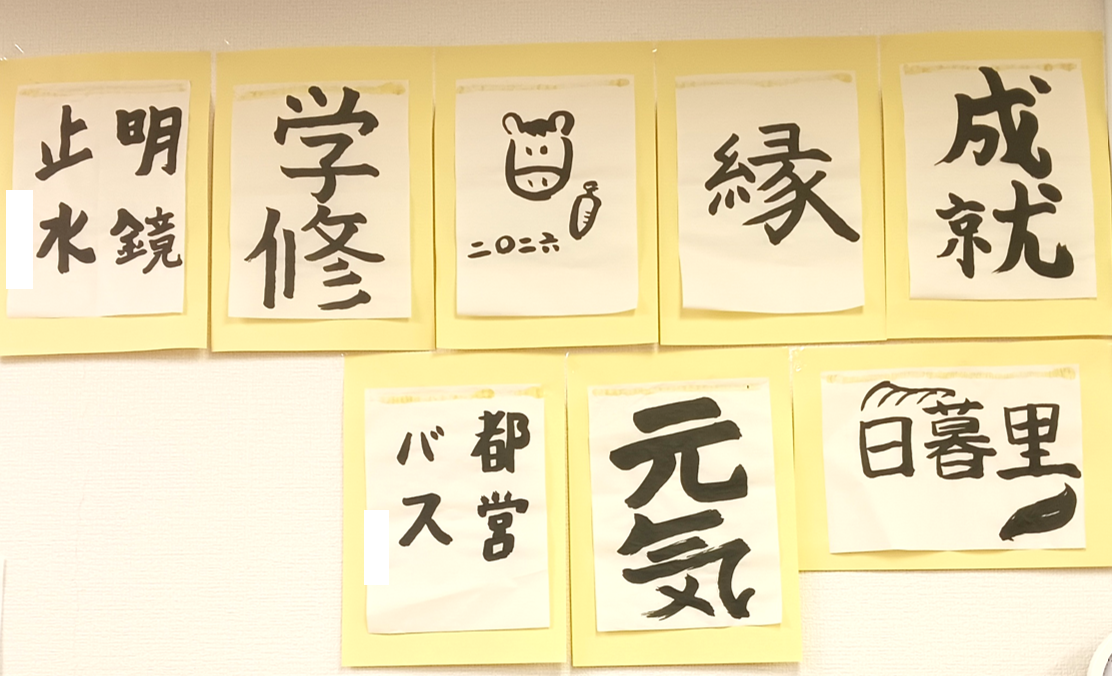 明鏡
止水
学修
二〇二六
縁
成就
都営
バス
元気
日暮里